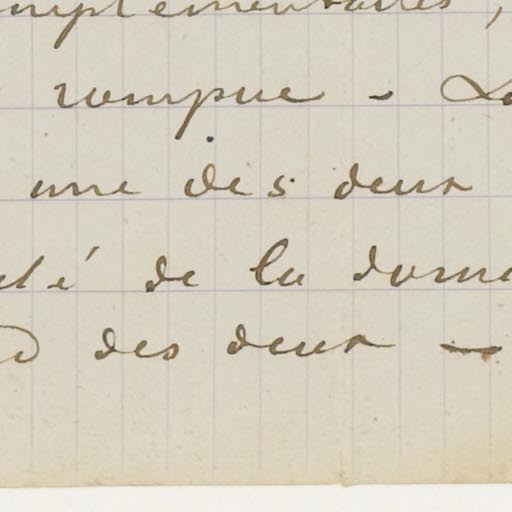 mplémentaires,
rompue - La
une des deux
té de la dome
des deux —